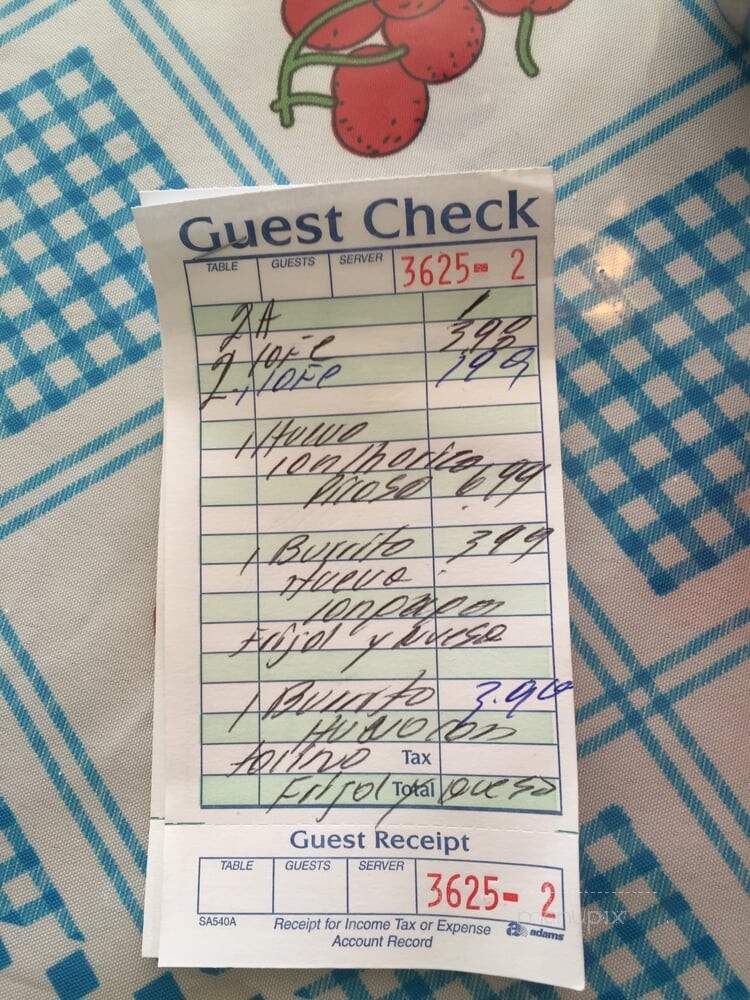 Guest Check
TABLE GUESTS SERVER 3625-2
2 A 1
2 10Fe 398
2 10Fe 199
1 Huevo
con
picoso 6.99
1 Burrito 399
Huevo
con papa
Frijol y queso
1 Burrito 3.99
Huevo con
tocino Tax
Frijol y queso Total
Guest Receipt
TABLE GUESTS SERVER 3625-2
SA540A Receipt for Income Tax or Expense Account Record adams
menupix